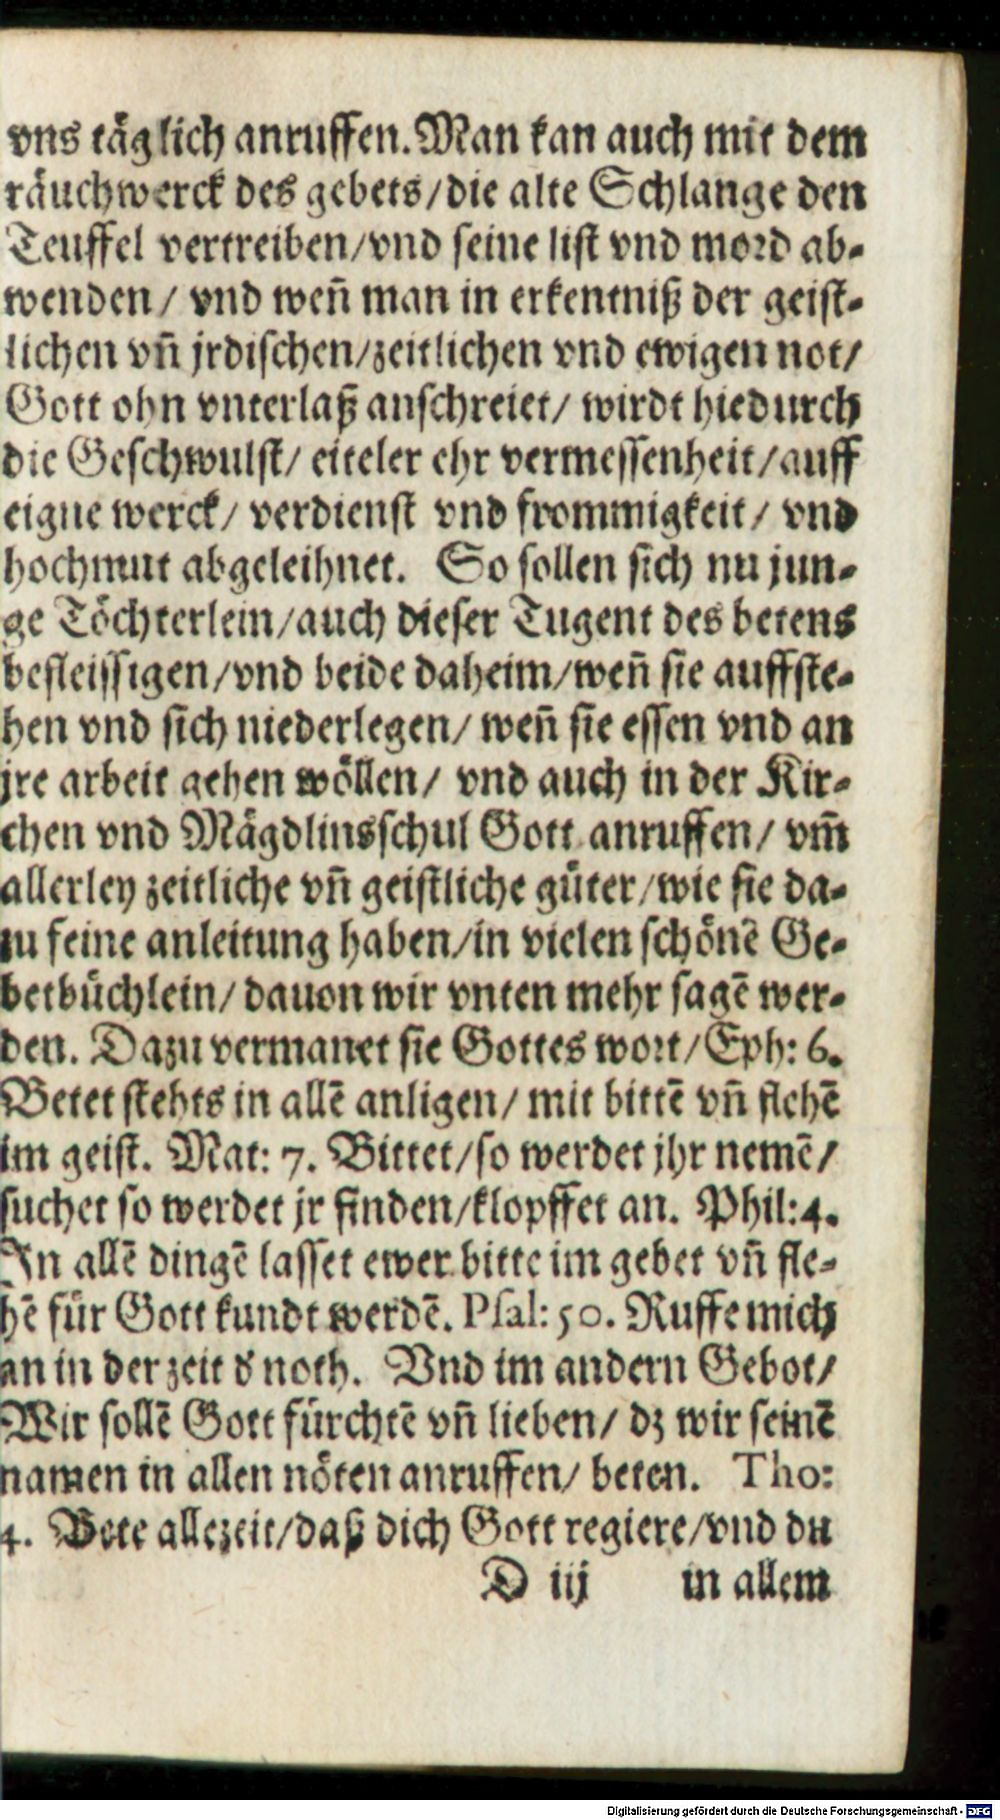 vns täglich anruffen. Man kan auch mit dem
räuchwerck des gebets/die alte Schlange den
Teuffel vertreiben/vnd seine list vnd mord ab-
wenden/ vnd weñ man in erkentniß der geist-
lichen vñ jrdischen/zeitlichen vnd ewigen not/
Gott ohn vnterlaß anschreiet/ wirdt hiedurch
die Geschwulst/ eiteler ehr vermessenheit/auff
eigne werck/ verdienst vnd frommigkeit/ vnd
hochmut abgeleihnet. So sollen sich nu jun-
ge Töchterlein/auch dieser Tugent des betens
befleissigen/vnd beide daheim/weñ sie auffste-
hen vnd sich niederlegen/ weñ sie essen vnd an
jre arbeit gehen wöllen/ vnd auch in der Kir-
chen vnd Mägdlinsschul Gott anruffen/ vm̃
allerley zeitliche vñ geistliche güter/wie sie da-
zu feine anleitung haben/in vielen schönẽ Ge-
betbüchlein/ dauon wir vnten mehr sagẽ wer-
den. Dazu vermanet sie Gottes wort/Eph: 6.
Betet stehts in allẽ anligen/ mit bittẽ vñ flehẽ
im geist. Mat: 7. Bittet/so werdet jhr nemẽ/
suchet so werdet jr finden/klopffet an. Phil:4.
In allẽ dingẽ lasset ewer bitte im gebet vñ fle-
hẽ für Gott kundt werdẽ. Psal: 50. Ruffe mich
an in der zeit d' noth. Vnd im andern Gebot/
Wir sollẽ Gott fürchtẽ vñ lieben/ dz wir seinẽ
namen in allen nöten anruffen/ beten. Tho:
4. Bete allezeit/daß dich Gott regiere/vnd du
D iij in allem
Digitalisierung gefördert durch die Deutsche Forschungsgemeinschaft - DFG